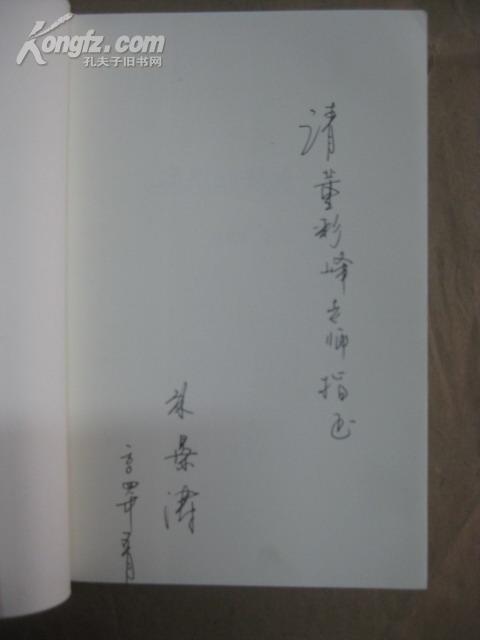 Kongfz.com
孔夫子旧书网
请董彩峰老师指正
林景涛
二〇〇四年五月